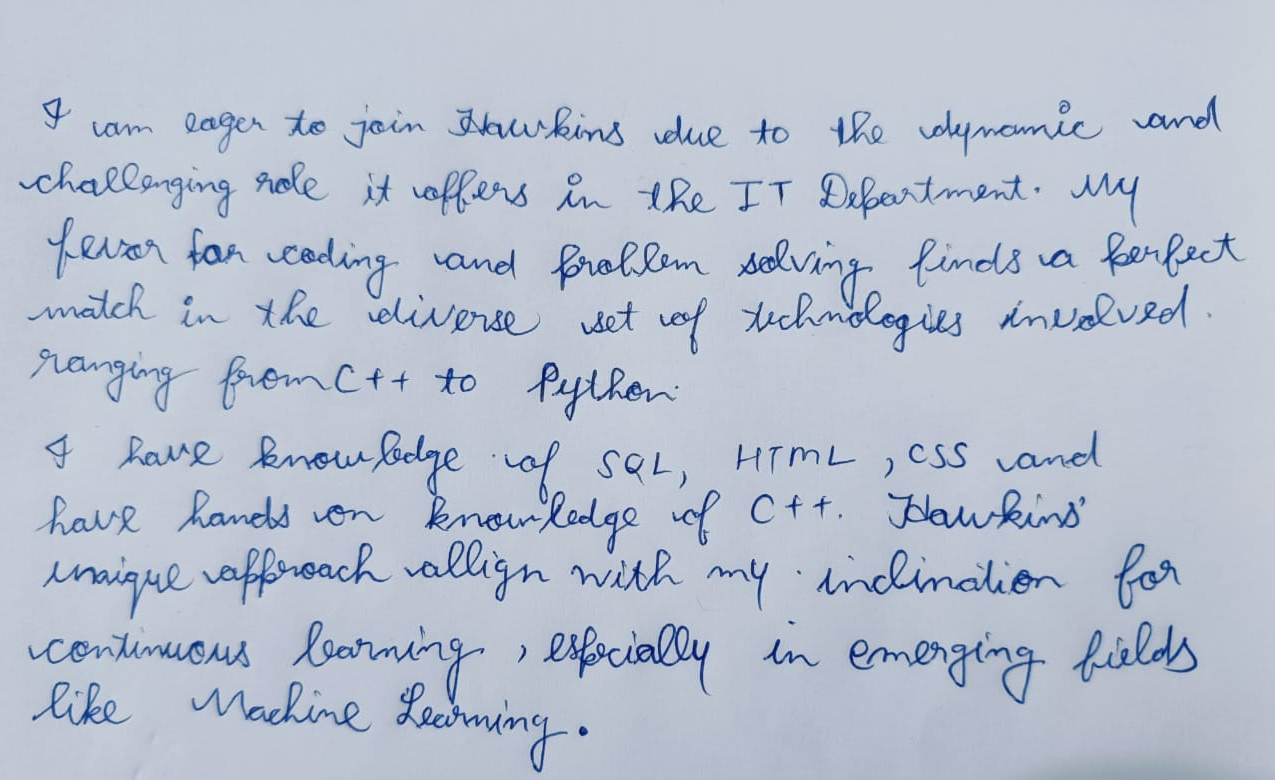 I am eager to join Hawkins due to the dynamic and
challenging role it offers in the IT Department. My
fevor for coding and problem solving finds a perfect
match in the diverse set of technologies involved.
ranging from C++ to Python.
I have knowledge of SQL, HTML, CSS and
have hands on knowledge of C++. Hawkins'
unique approach allign with my inclination for
continuous learning, especially in emerging fields
like Machine Learning.